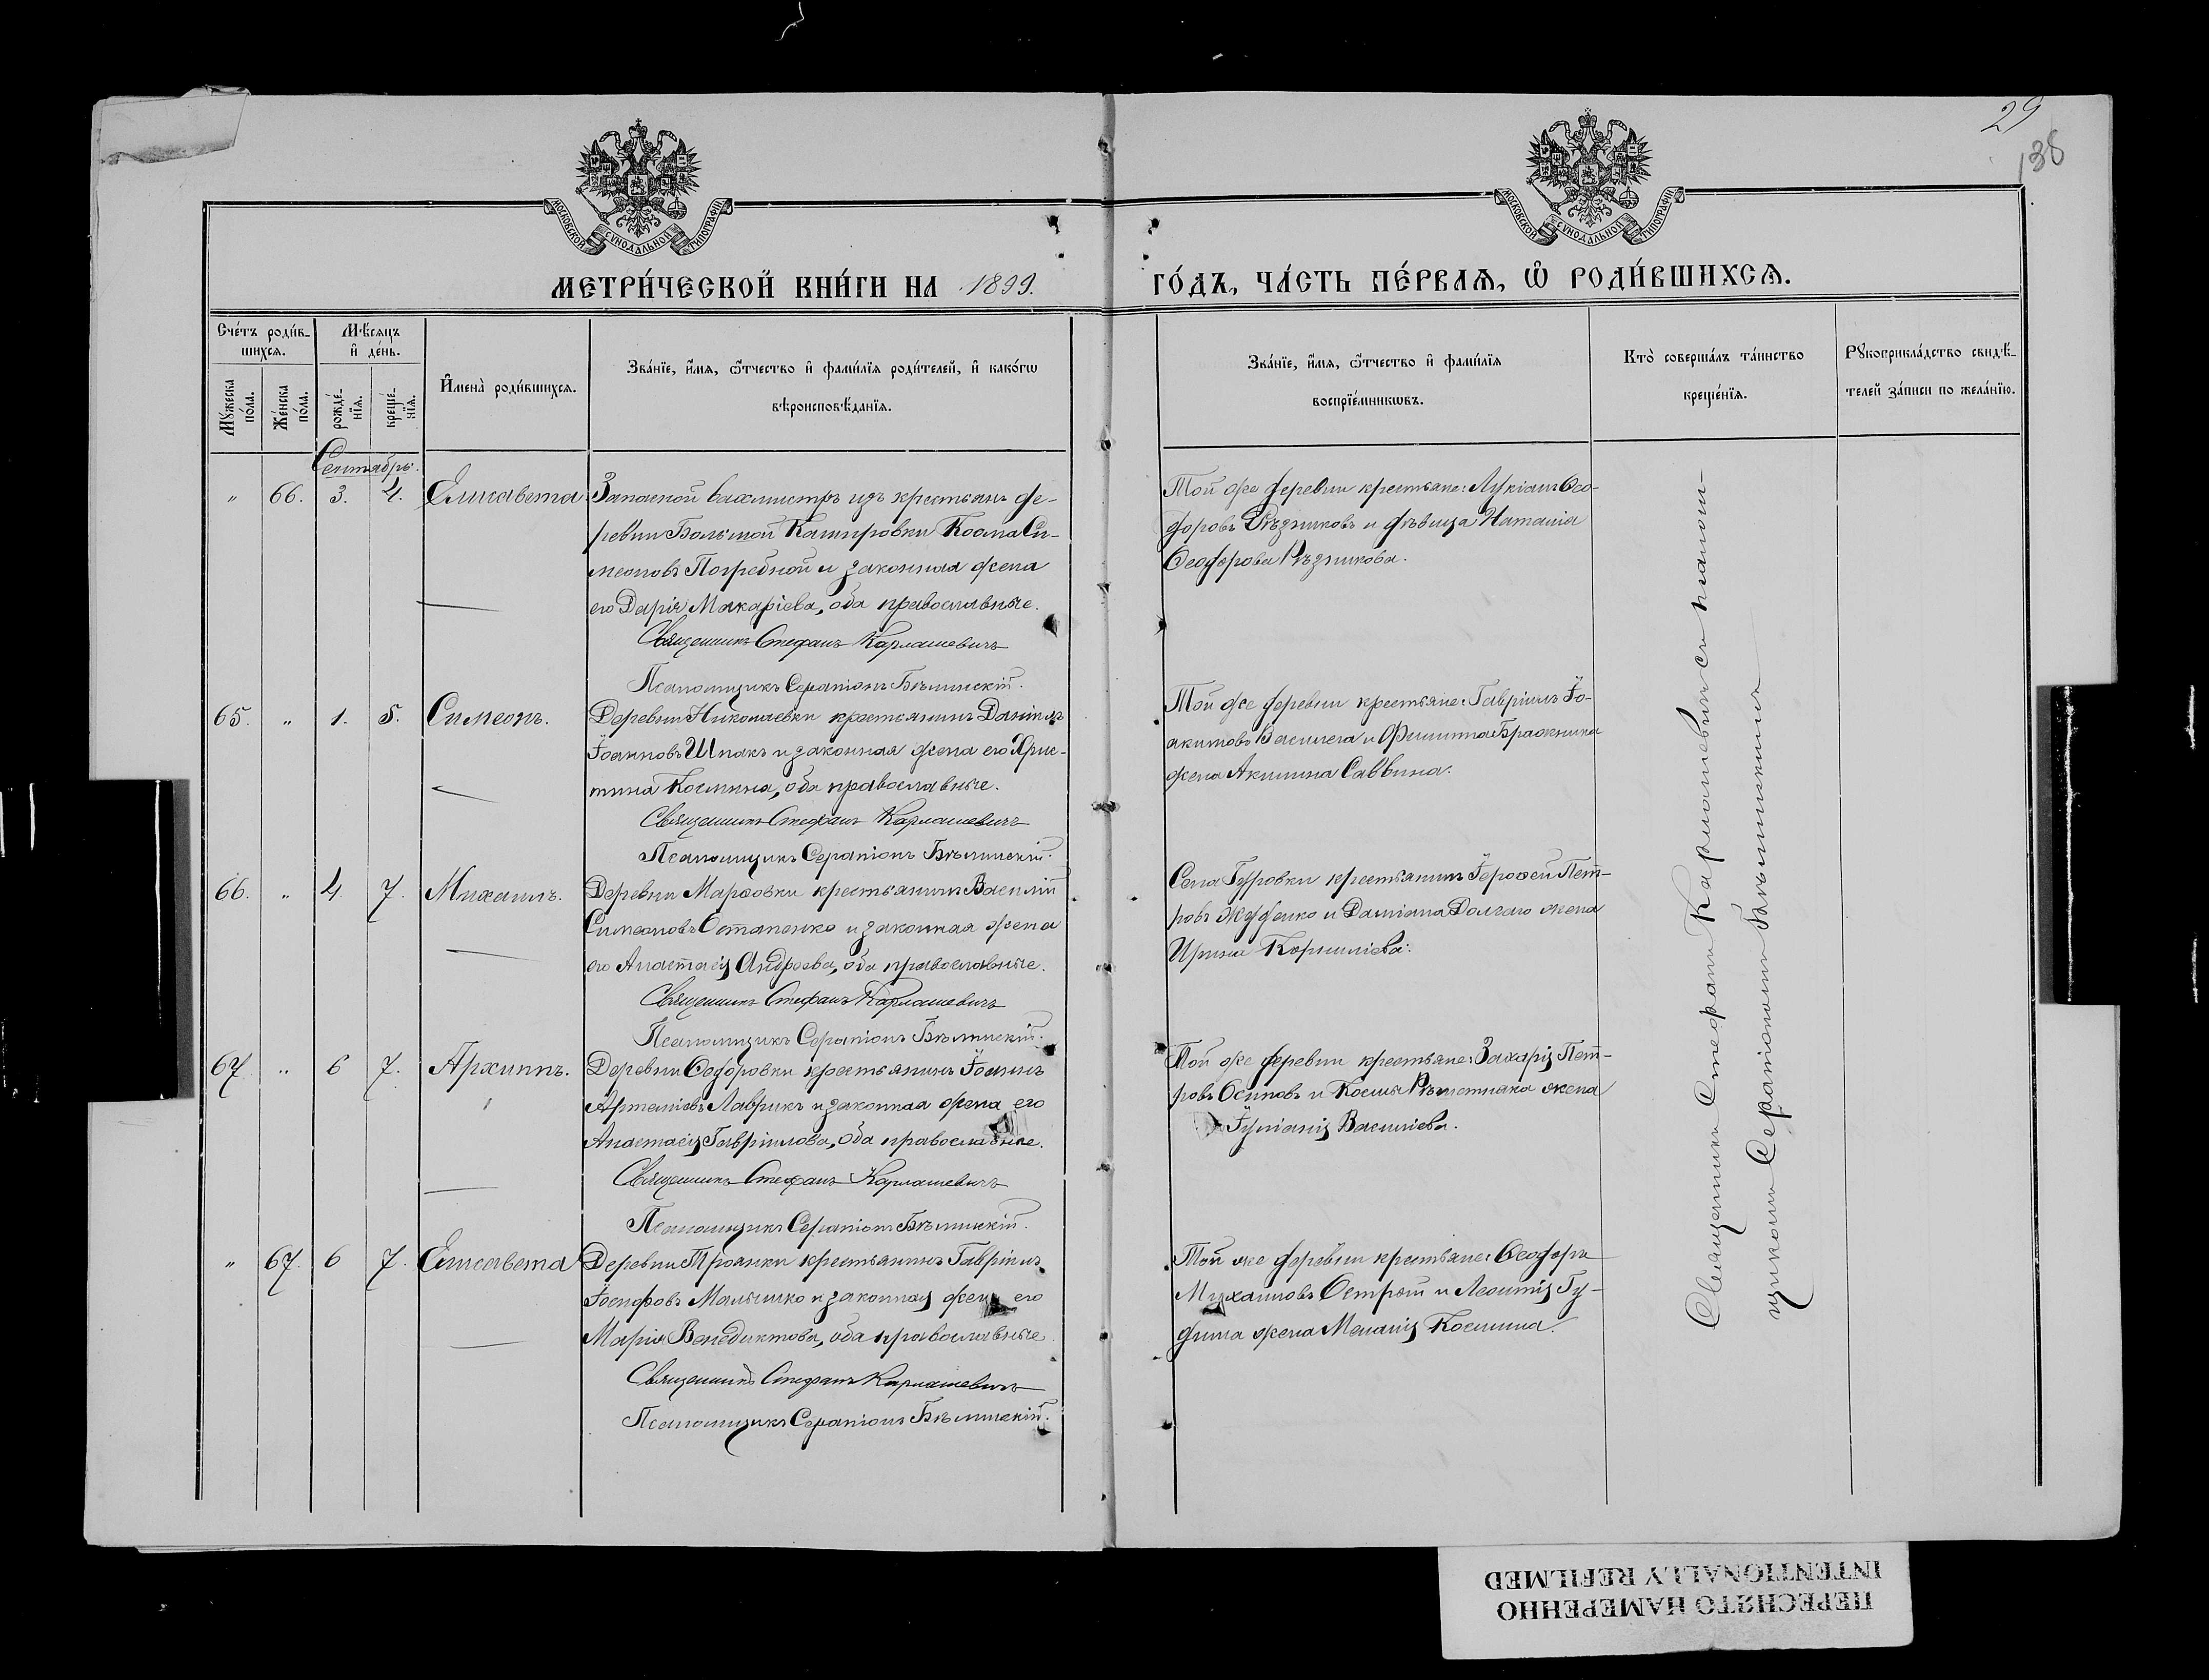 29
138
МОСКОВСКОЙ СѴНОДАЛЬНОЙ ТИПОГРАФІИ
МОСКОВСКОЙ СѴНОДАЛЬНОЙ ТИПОГРАФІИ
МЕТРИ́ЧЕСКОЙ КНИ́ГИ НА 1899. ГО́ДЪ, ЧА́СТЬ ПЕ́РВАѦ, Ѽ РОДИ́ВШИХСѦ.
Сче́тъ роди́в-
шихсѧ.
Мꙋ́жеска
по́ла.
Же́нска
по́ла.
Мѣ́сѧцъ
и҆ де́нь.
рожде́-
нїѧ.
креще́-
нїѧ.
И҆мена̀ роди́вшихсѧ.
Зва́нїе, и҆́мѧ, ѻ҆́тчество и҆ фами́лїѧ роди́телей, и҆ како́гѡ
вѣроисповѣ́данїѧ.
Зва́нїе, и҆́мѧ, ѻ҆́тчество и҆ фами́лїѧ
воспрїе́мникѡвъ.
Кто̀ соверша́лъ та́инство
креще́нїѧ.
Рꙋкоприкла́дство свидѣ́-
телей за́писи по жела́нїю.
Сентябрь.
" 66. 3. 4. Елисавета
Запасной вахмистръ изъ крестьянъ де-
ревни Большой Кашировки Косма Си-
меоновъ Погребной и законная жена
его Дарія Макаріева, оба православные.
Священникъ Стефанъ Карлашевичъ
Псаломщикъ Серапіонъ Бѣлинскій.
Той же деревни крестьяне: Лукіанъ Ѳео-
доровъ Рѣзниковъ и дѣвица Наталія
Ѳеодорова Рѣзникова.
65. " 1. 5. Симеонъ.
Деревни Николаевки крестьянинъ Даніилъ
Іоанновъ Шпакъ и законная жена его Хрис-
тина Космина, оба православные.
Священникъ Стефанъ Карлашевичъ
Псаломщикъ Серапіонъ Бѣлинскій.
Той же деревни крестьяне: Гавріилъ Іо-
акимовъ Василега и Филиппа Бражника
жена Акилина Саввина.
66. " 4. 7. Михаилъ.
Деревни Марѳовки крестьянинъ Василій
Симеоновъ Остапенко и законная жена
его Анастасія Андреева, оба православные.
Священникъ Стефанъ Карлашевичъ
Псаломщикъ Серапіонъ Бѣлинскій.
Села Гуровки крестьянинъ Іероѳей Пет-
ровъ и Даміана Долгаго жена
Ирина Корниліева.
67. " 6 7. Архиппъ.
Деревни Ѳедоровки крестьянинъ Іоаннъ
Артеміевъ Лаврикъ и законная жена его
Анастасія Гавріилова, оба православные.
Священникъ Стефанъ Карлашевичъ
Псаломщикъ Серапіонъ Бѣлинскій.
Той же деревни крестьяне: Захарія Пет-
ровъ Осиповъ и Космы Рѣшетняка жена
Іуліанія Василіева.
" 67. 6 7. Елисавета
Деревни Троянки крестьянинъ Гавріилъ
Іосифовъ Малышко и законная жена его
Марія Венедиктова, оба православные.
Священникъ Стефанъ Карлашевичъ
Псаломщикъ Серапіонъ Бѣлинскій.
Той же деревни крестьяне: Ѳеодоръ
Михаиловъ Острый и Леонтія Гу-
дима жена Меланія Космина.
Священникъ Стефанъ Карлашевичъ съ псалом-
щикомъ Серапіономъ Бѣлинскимъ
ПЕРЕСНЯТО НАМЕРЕННО
INTENTIONALLY REFILMED